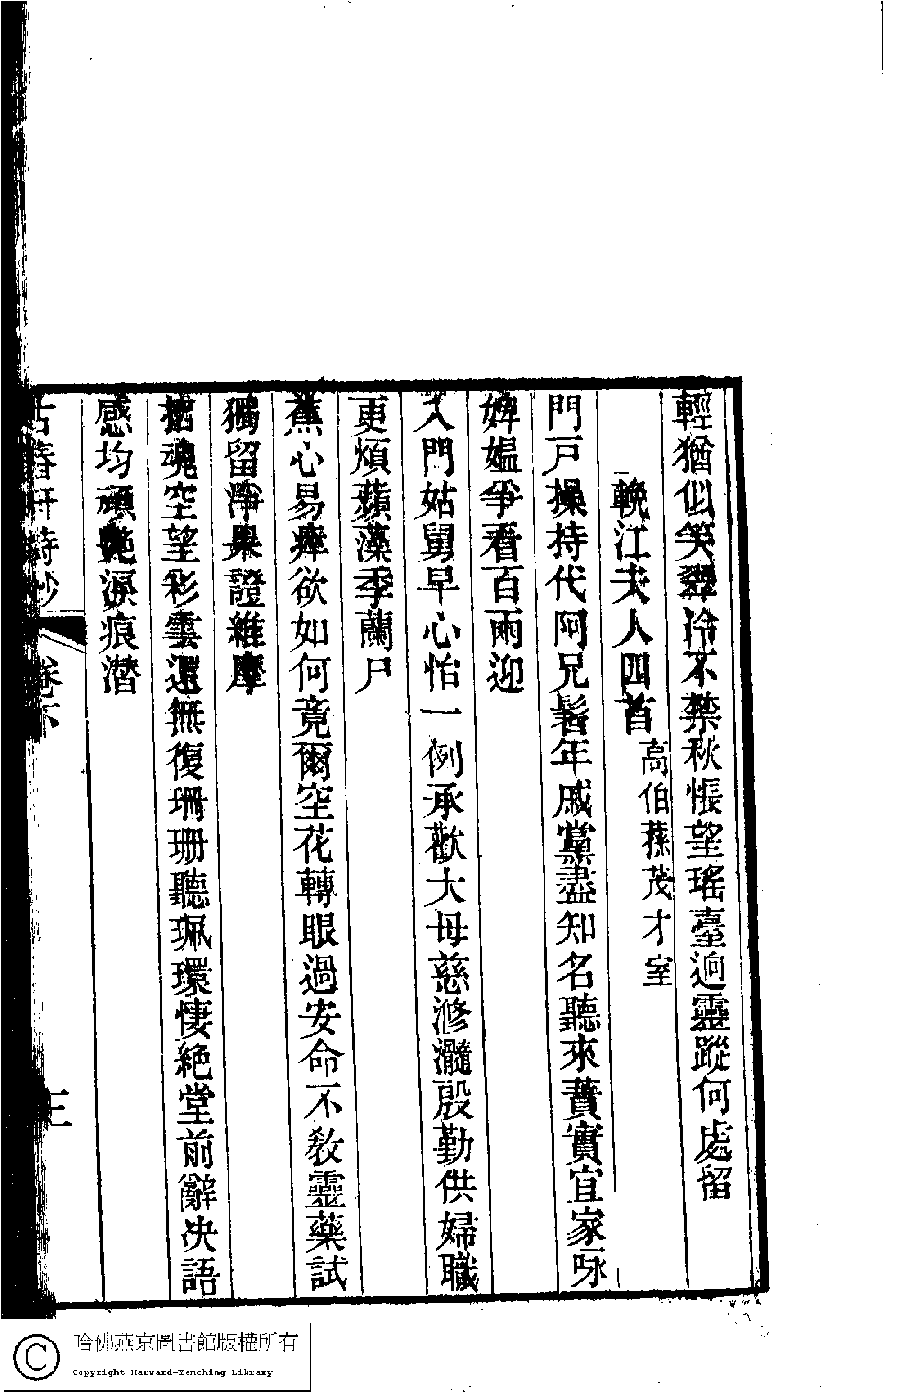 輕猶似笑翠冷不禁秋悵望瑤臺迥靈蹤何處留
輓江夫人四首高伯蓀茂才室
門戸操持代阿兄髫年戚黨盡知名聽來蕡實宜家咏
婢媼爭看百兩迎
入門姑舅早心怡一例承歡大母慈滫瀡殷勤供婦職
更煩蘋藻季蘭尸
蕉心易瘁欲如何竟爾空花轉眼過安命不教靈藥試
獨留淨果證維摩
招魂空望彩雲還無復珊珊聽珮環悽絶堂前辭决語
感均頑艶淚痕潸
古春軒詩鈔 卷下
哈佛燕京圖書館版權所有
Copyright Harvard-Yenching Library